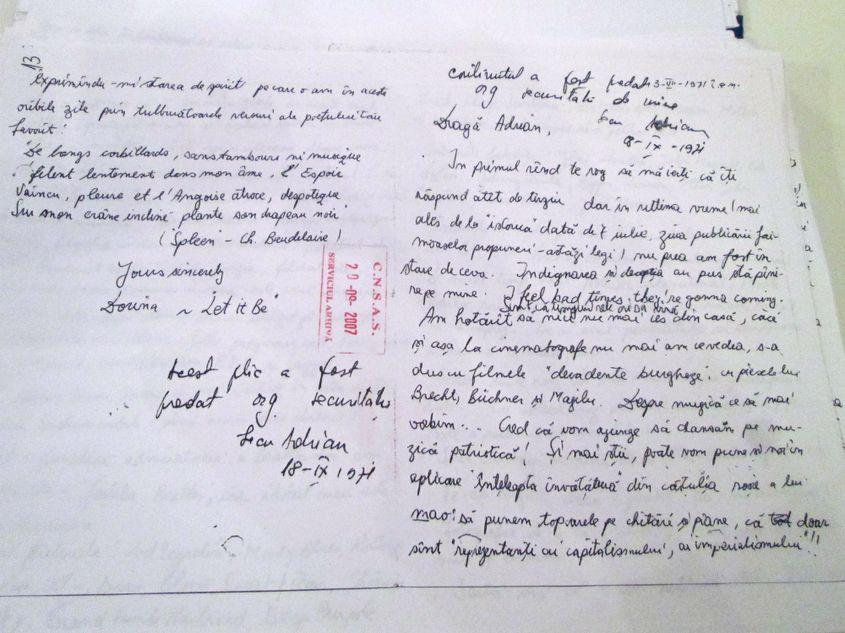 13
Exprimîndu-mi starea de spirit pe care o am în aceste
oribile zile prin tulburătoarele versuri ale poetului tău
favorit:
"De longs corbillards, sans tambours ni musique
filent lentement dans mon âme, l'Espoir
Vaincu, pleure et l'Angoise atroce, despotique
Sur mon crâne incliné plante son drapeau noir"
("Spleen" - Ch. Baudelaire)
Yours sincerely
Dorina ~ "Let it Be"
C.N.S.A.S.
20-09-2007
SERVICIUL ARHIVĂ
Acest plic a fost
predat org securitatii
Ion Adrian
18-IX 1971
conținutul a fost predat
org securitatii de mine
Adrian
18-IX-1971
Dragă Adrian,
În primul rînd te rog să mă ierți că îți
răspund atît de tîrziu dar în ultima vreme! mai
ales de la "istorica" dată de 7 iulie, ziua publicării fai-
moaselor propuneri - astăzi legi! nu prea am fost în
stare de ceva. Indignarea și au pus stăpîni-
re pe mine. I feel bad times they're gonna coming.
Am hotărît să nici nu mai ies din casă, căci
și așa la cinematografe nu mai am ce vedea, s-a
dus cu filmele "decadente burgheze", cu piesele lui
Brecht, Büchner și Despre muzică ce să mai
vorbim... Cred că vom ajunge să dansăm pe mu-
zică patriotică! Și mai știi, poate vom pune și noi în
aplicare "înțeleapta învățătură" din cărtulia roșie a lui
mao! să punem topoarele pe chitări și piane, că doar
sînt "reprezentanți ai capitalismului, ai imperialismului"!!